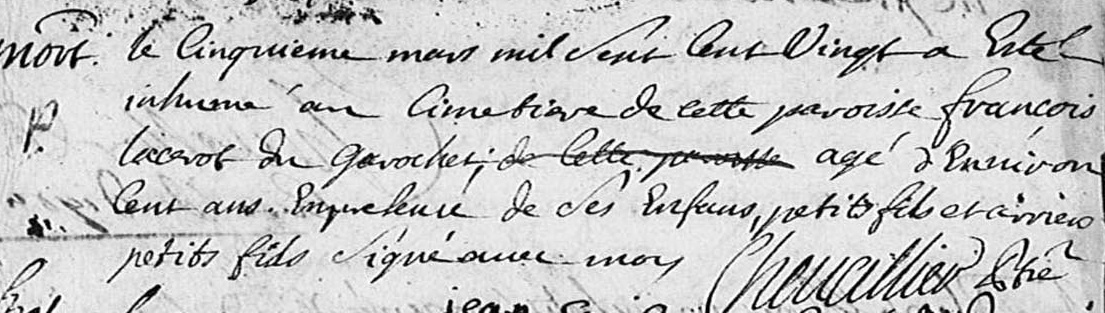 mort. le Cinquieme mars mil sept Cent Vingt a Esté
P. inhumé au Cimetiere de cette paroisse francois
du Garochet, de cette paroisse agé d'Environ
Cent ans. En presence de ses Enfans, petits fils et arriere
petits fils signé avec moy
jean